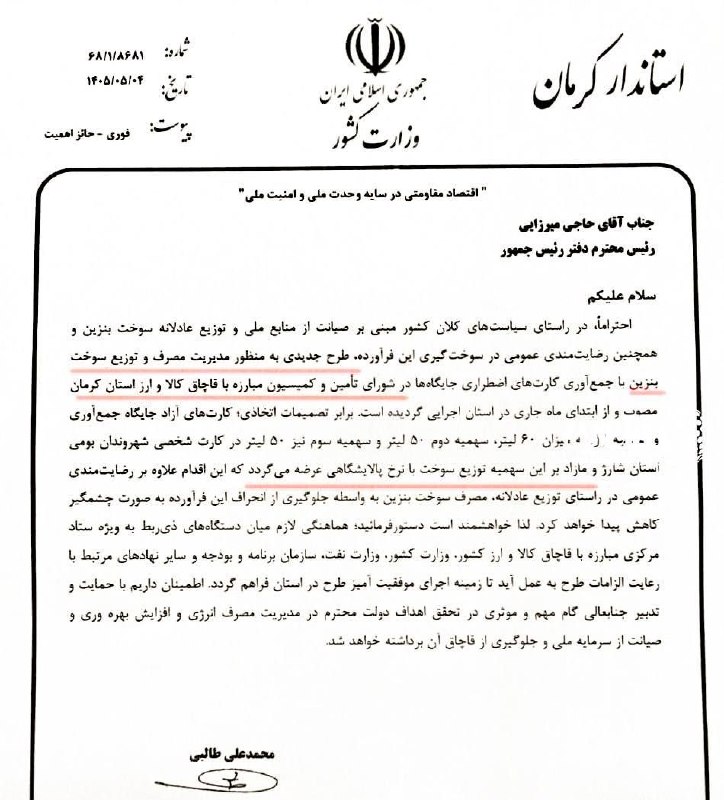 استاندار کرمان
جمهوری اسلامی ایران
وزارت کشور
شماره: ۶۸/۱/۸۶۸۱
تاریخ: ۱۴۰۵/۰۵/۰۴
پیوست: فوری - حائز اهمیت
"اقتصاد مقاومتی در سایه وحدت ملی و امنیت ملی"
جناب آقای حاجی میرزایی
رئیس محترم دفتر رئیس جمهور
سلام علیکم
احتراماً، در راستای سیاست‌های کلان کشور مبنی بر صیانت از منابع ملی و توزیع عادلانه سوخت بنزین و
همچنین رضایت‌مندی عمومی در سوخت‌گیری این فرآورده، طرح جدیدی به منظور مدیریت مصرف و توزیع سوخت
بنزین با جمع‌آوری کارت‌های اضطراری جایگاه‌ها در شورای تأمین و کمیسیون مبارزه با قاچاق کالا و ارز استان کرمان
مصوب و از ابتدای ماه جاری در استان اجرایی گردیده است. برابر تصمیمات اتخاذی؛ کارت‌های آزاد جایگاه جمع‌آوری
و میزان ۶۰ لیتر، سهمیه دوم ۵۰ لیتر و سهمیه سوم نیز ۵۰ لیتر در کارت شخصی شهروندان بومی
استان شارژ و مازاد بر این سهمیه توزیع سوخت با نرخ پالایشگاهی عرضه می‌گردد که این اقدام علاوه بر رضایت‌مندی
عمومی در راستای توزیع عادلانه، مصرف سوخت بنزین به واسطه جلوگیری از انحراف این فرآورده به صورت چشمگیر
کاهش پیدا خواهد کرد. لذا خواهشمند است دستورفرمائید؛ هماهنگی لازم میان دستگاه‌های ذی‌ربط به ویژه ستاد
مرکزی مبارزه با قاچاق کالا و ارز کشور، وزارت کشور، وزارت نفت، سازمان برنامه و بودجه و سایر نهادهای مرتبط با
رعایت الزامات طرح به عمل آید تا زمینه اجرای موفقیت آمیز طرح در استان فراهم گردد. اطمینان داریم با حمایت و
تدبیر جنابعالی گام مهم و موثری در تحقق اهداف دولت محترم در مدیریت مصرف انرژی و افزایش بهره وری و
صیانت از سرمایه ملی و جلوگیری از قاچاق آن برداشته خواهد شد.
محمدعلی طالبی